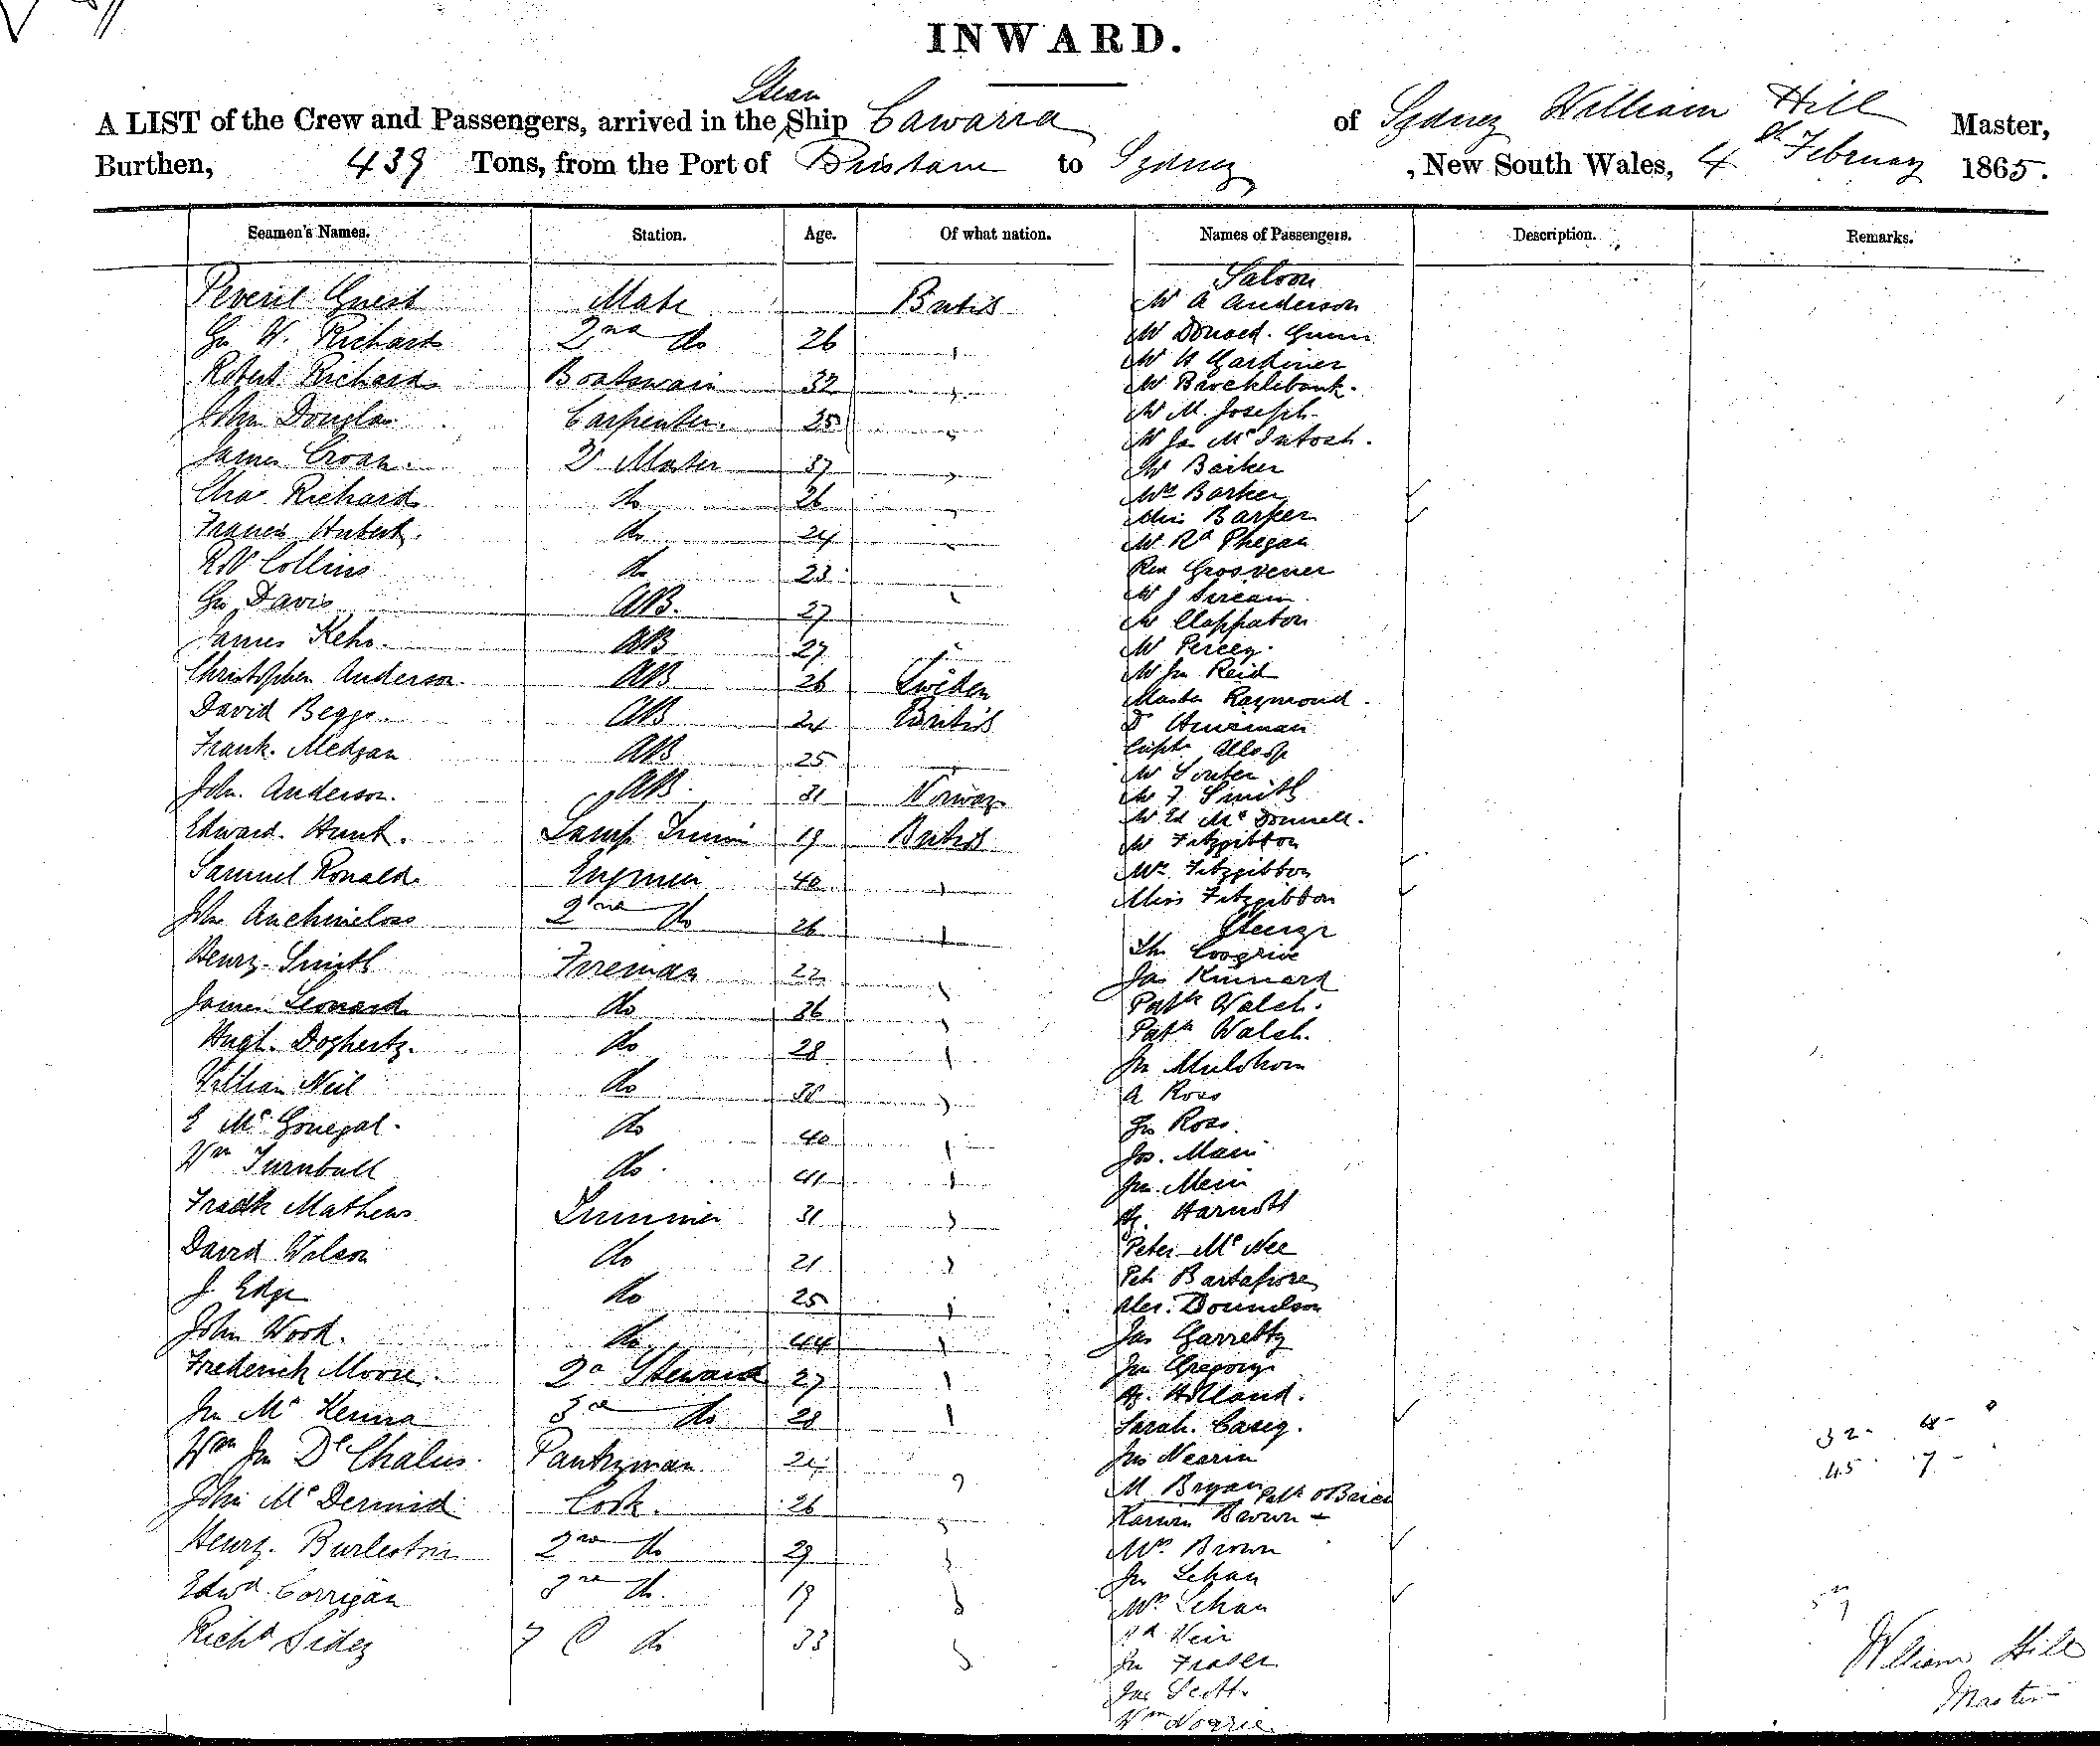 INWARD.
Steam
A LIST of the Crew and Passengers, arrived in the Ship Cawarra of Sydney William Hill Master,
Burthen, 439 Tons, from the Port of Brisbane to Sydney, New South Wales, 4th February 1865.
Seamen's Names. Station. Age. Of what nation. Names of Passengers. Description. Remarks.
Saloon
Peveril Guest Mate British Mr A Anderson
Geo W. Richards 2nd do 26 " Mr Donald Gunn
Mr H Gardiner
Robert Richards Boatswain 32 " Mr Brocklebank.
John Douglas Carpenter. 35 " Mr M. Joseph
Mr Jas McIntosh.
James Croan. 37 " Mr Barker
Chas Richards do 26 " Mrs Barker
Miss Barker
Francis Hubert. do 24 " Mr Rd Phegan
R W Collins do 23 Rev Grosvener
Geo Davis AB. 27 " Mr J
Mr Clappaton
James Keho. AB 27 " Mr Percey.
Christopher Anderson. AB 26 Sweden Mr Jn Reid
Master Raymond.
David Beggs. AB 24 British Dr
Frank. Medgan AB 25 " Capt Allsop
Mr Souter
John. Anderson. AB. 31 Norway Mr F Smith
Mr Ed McDonnell.
Edward. Hunt. Lamp Trimmer 19 British Mr Fitzgibbon
Samuel Ronalds Engineer 40 " Mrs Fitzgibbon
Miss Fitzgibbon
John Auchincloss 2nd do 26 " Steerage
Thos Cosgrive
Henry. Smith Fireman 22 " Jas Kinnard
James Leonard do 36 " Patk Walsh.
Patk Walsh.
Hugh. Dogherty. do 28 " Jn
William Neil do 38 " A Ross
E McGonegal. do 40 " Geo Ross.
Jos. Main
Wm Turnbull do. 41 " Jn. Mein
Fredk Mathews Trimmer 31 " Hy. Harnott
Peter McNee
David Wilson do 21 " Petr
J. Edge do 25 " Alex. Donnelson
John Wood. do 44 " Jas Garretty
Frederick Moore. 2d Steward 27 " Jn Gregory
Hy. Holland.
Jn McKenna 3d do 28 " Sarah. Casey.
Wm Jn De Chalus. Pantryman 24 " Jas Nearin
32 - 4 -
45 - 7 -
M Bryan Patk OBrien
John McDermid Cook. 26 " Brown
Henry. Burleston 2nd do 29 " Mrs Brown
Jn Lehan
Edwd. Corrigan 3rd do. 19 " Mrs Lehan
Richd Sidey F C do 33 " Rd Weir
Jn Fraser
Jas Scott.
Wm
William Hill
Master